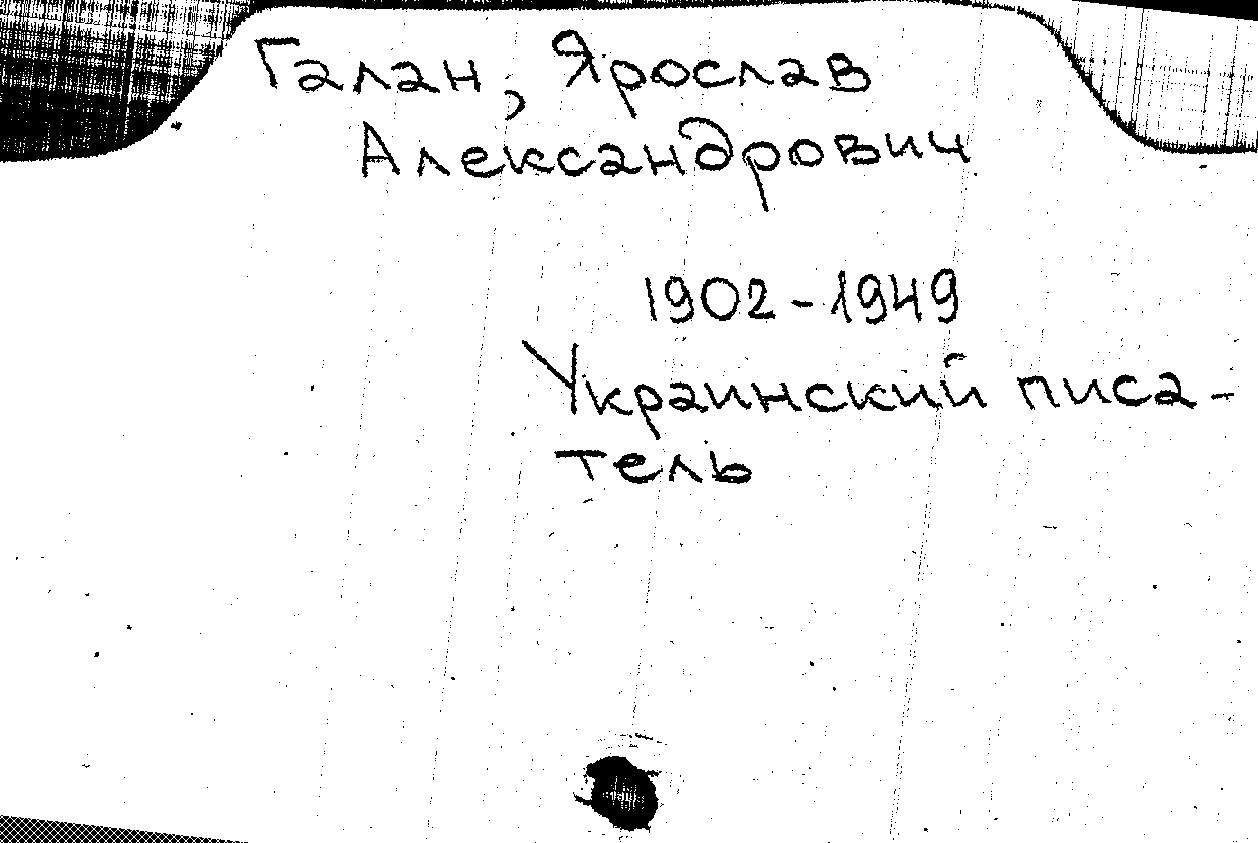 Галан, Ярослав
Александрович
1902-1949
Украинский писа-
тель